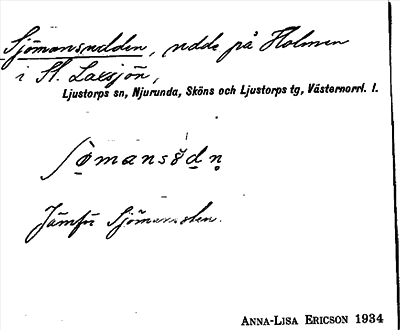 Sjömansudden, udde på Holmen
i St. Laxsjön,
Ljustorps sn, Njurunda, Sköns och Ljustorps tg, Västernorrl. l.
Jämför Sjömansviken.
ANNA-LISA ERICSON 1934